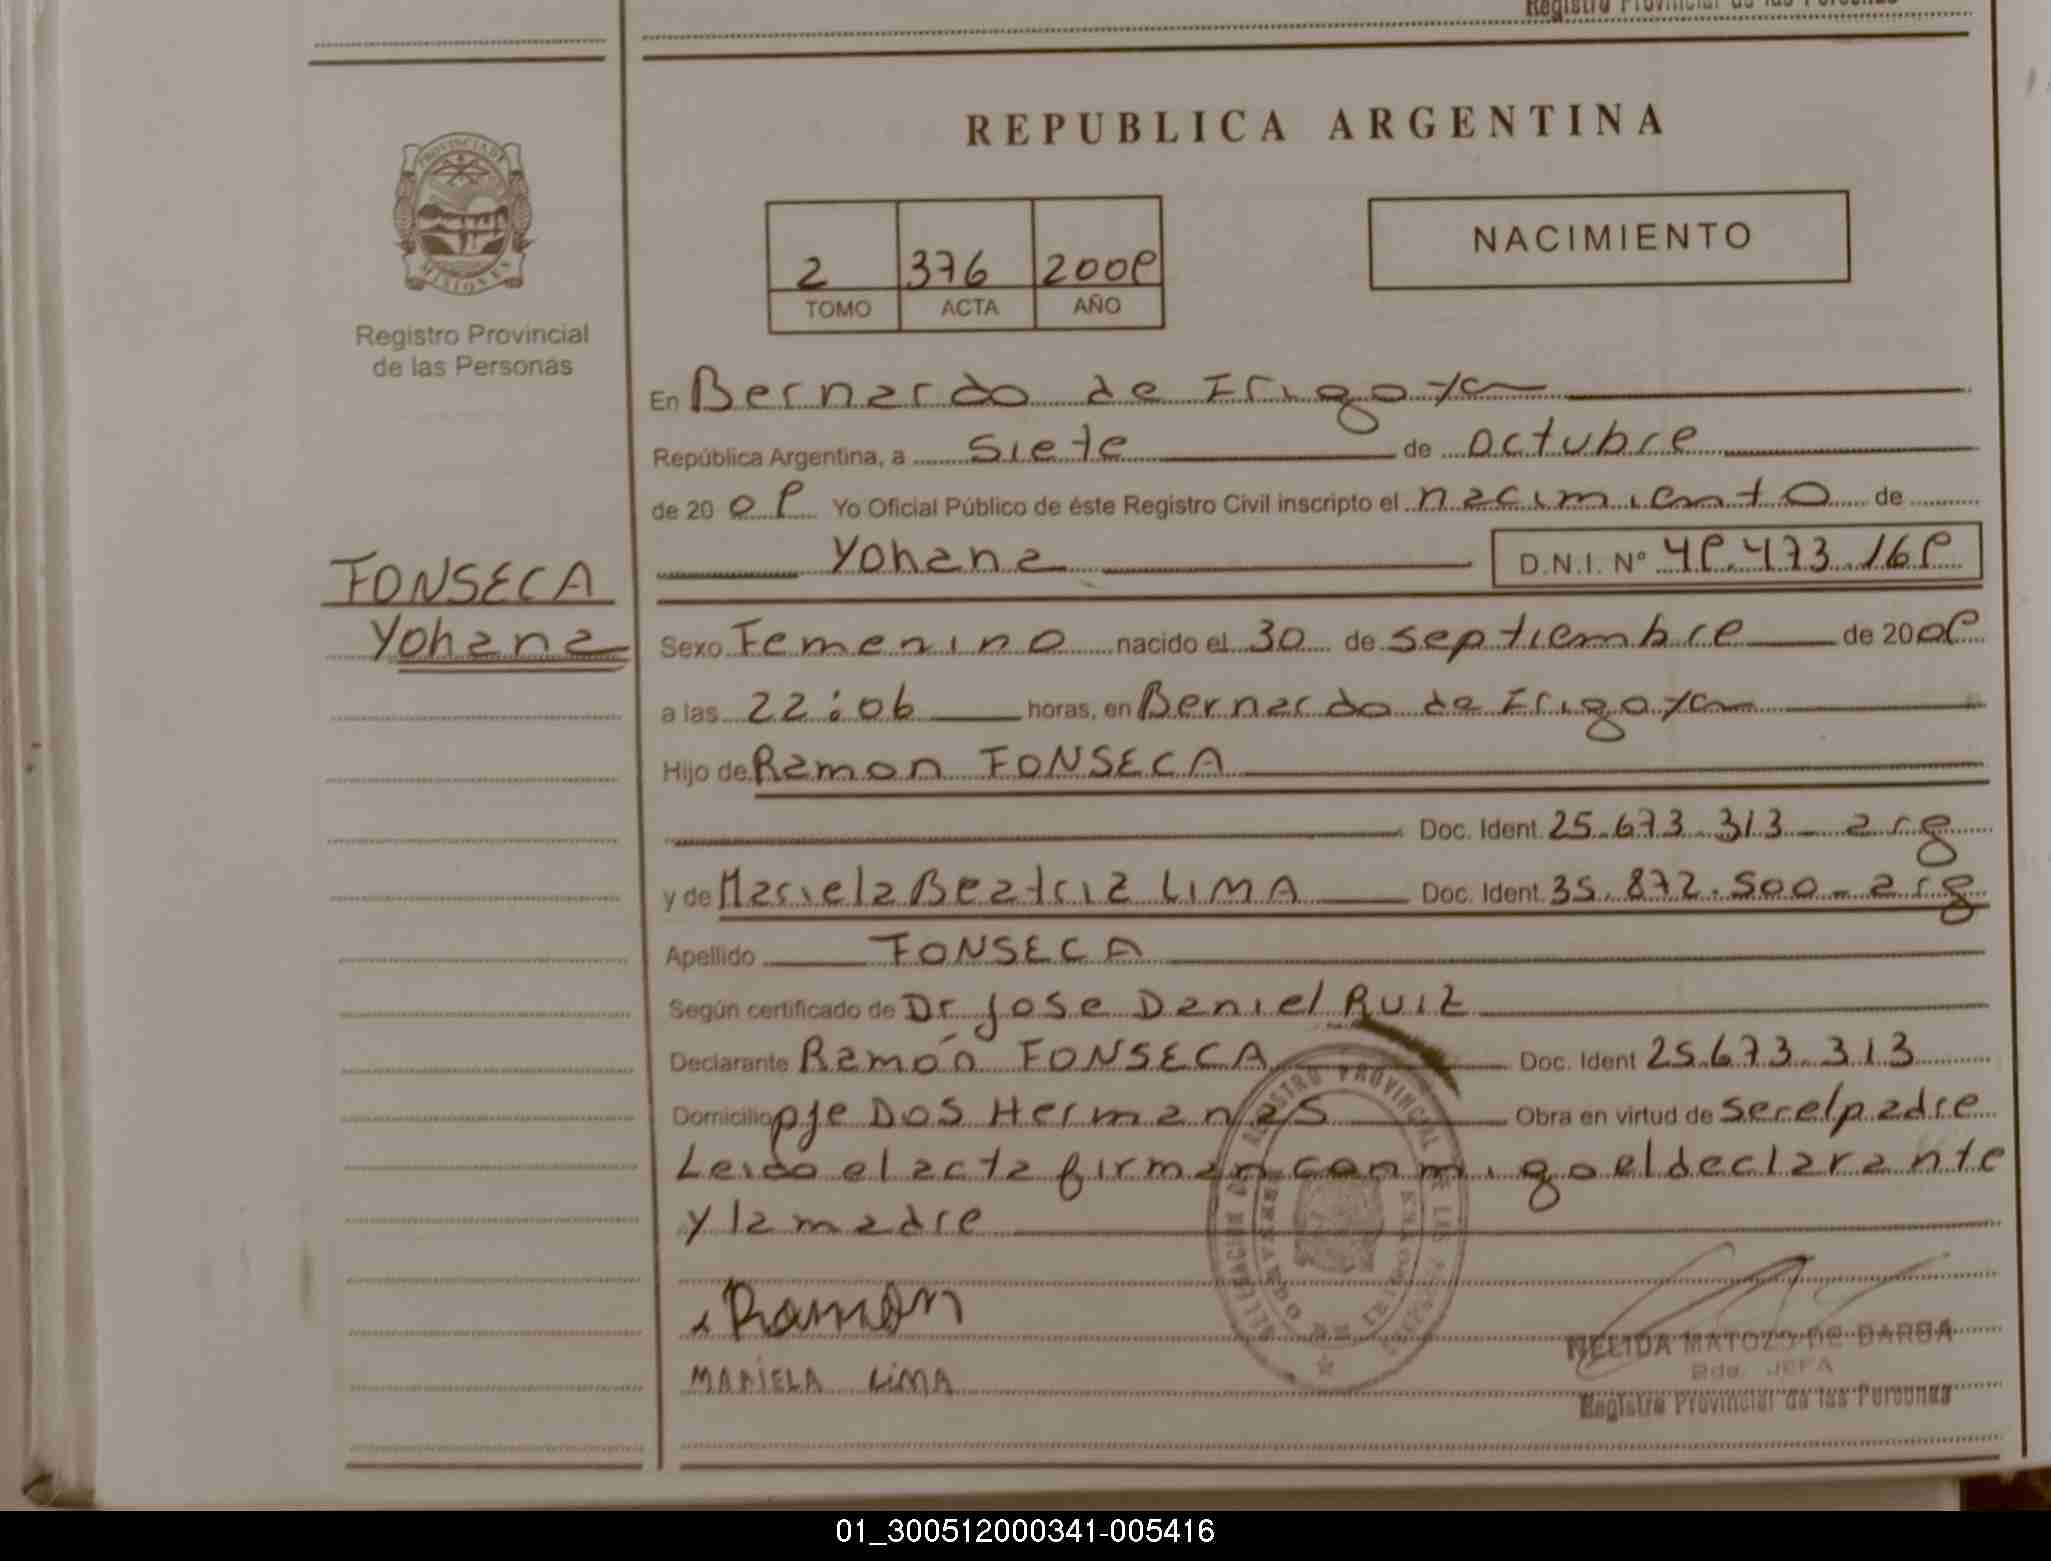 Registro Provincial de las Personas
REPUBLICA ARGENTINA
PROVINCIA DE
MISIONES
Registro Provincial
de las Personas
2 376 2008
TOMO ACTA AÑO
NACIMIENTO
En Bernardo de Irigoyen
República Argentina, a siete de octubre
de 20 08 Yo Oficial Público de éste Registro Civil inscripto el nacimiento de
Yohana D.N.I. Nº 48.473.168
FONSECA
Yohana
Sexo Femenino nacido el 30 de septiembre de 2008
a las 22:06 horas, en Bernardo de Irigoyen
Hijo de Ramon FONSECA
Doc. Ident. 25.673.313 - arg
y de Mariela Beatriz LIMA Doc. Ident. 35.872.500 - arg
Apellido FONSECA
Según certificado de Dr Jose Daniel RUIZ
Declarante Ramón FONSECA Doc. Ident 25.673.313
Domicilio pje Dos Hermanas Obra en virtud de ser el padre
Leido el acta firman conmigo el declarante
y la madre
Ramon
MARIELA LIMA
NELIDA MATOZO DE BARBA
JEFA
Registro Provincial de las Personas
01_300512000341-005416